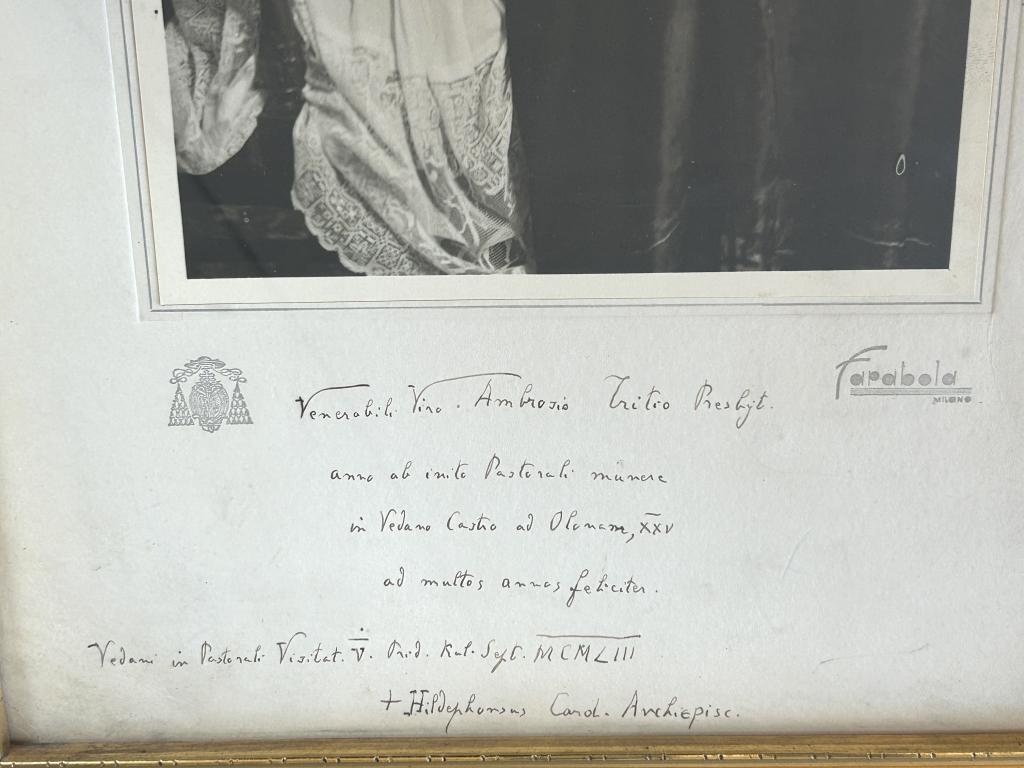 Venerabili Viro . Ambrosio Tritio Presbyt.
Farabola
MILANO
anno ab inito Pastorali munere
in Vedano Castro ad Olonam, XXV
ad multos annos feliciter.
Vedani in Pastorali Visitat. V. Prid. Kal. Sept. MCMLIII
+ Hildephonsus Card. Archiepisc.